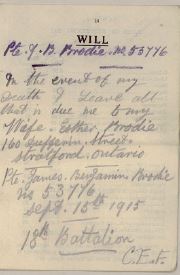 14
WILL
Pte. J. B. Brodie. No 53776
In the event of my
death I Leave all
that is due me to my
Wife. Esther Brodie
160 Dufferin. Street.
Stratford. Ontario
Pte. James. Benjamin. Brodie
No 53776
Sept. 15th 1915
18th Battalion
C.E.F.